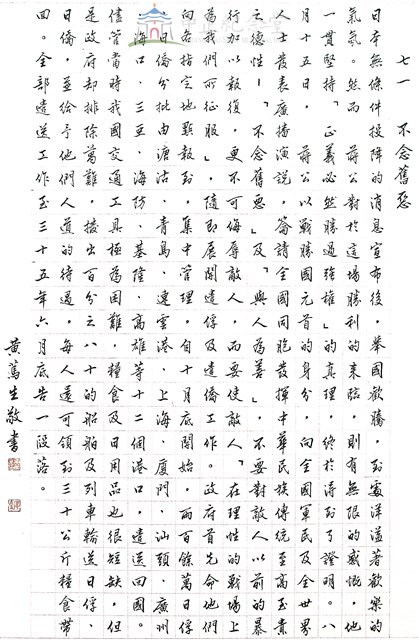 七一　不念舊惡
日本無條件投降的消息宣布後，舉國歡騰，到處洋溢著歡樂的
氣氛。然而　蔣公對於這場勝利的來臨，則有無限的感慨，他
一貫堅持「正義必然勝過強權」的真理，終於得到了證明。八
月十五日，　蔣公以戰勝國元首的身分，向全國軍民及全世界
人士發表廣播演說，籲請全國同胞發揮中華民族傳統至高至貴
之德性「不念舊惡」及「與人為善」，不要對敵人以前的暴
行加以報復，更不可侮辱敵人，而要使敵人「在理性的戰場上
為我們所征服」。隨即展開遣俘及遣僑工作。政府首先命他們
向各指定地點報到，集中管理，自十月底開始，兩百餘萬日俘
、日僑分批由塘沽、青島、連雲港、上海、廈門、汕頭、廣州
、海口、三亞、海防、基隆、高雄等十二個港口遣送回國。
儘管當時我國交通工具極為困難，糧食及日用品也很短缺，但
是政府却排除萬難，撥出百分之八十的船舶及列車輸送日俘、
日僑，並給予他們人道的待遇，每人還可領到三十公斤糧食帶
回。全部遣送工作至三十五年六月底告一段落。
黃篤生敬書